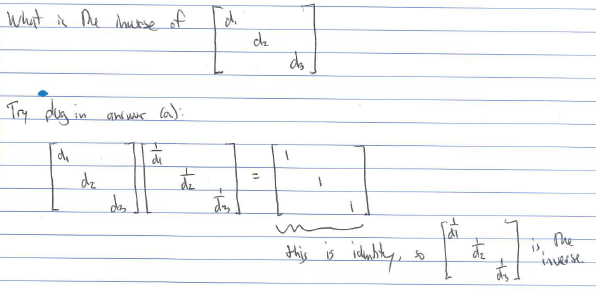 What is the inverse of [d1 d2 d3]
Try plug in answer (a):
[d1 d2 d3] [1/d1 1/d2 1/d3] = [1 1 1]
this is identity, so [1/d1 1/d2 1/d3] is the inverse.